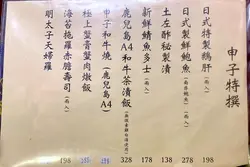 申子特撰
日式特製鵝肝(兩入) 198
日式新製鮑魚 278
土左酢秘製漬 138
新鮮鯖魚多士(兩入) 178
鹿兒島A4和牛茶漬飯 328
申子和牛燒(鹿兒島A4)
極上蟹膏蟹肉燉飯
海苔拖羅赤膽壽司 198
明太子天婦羅